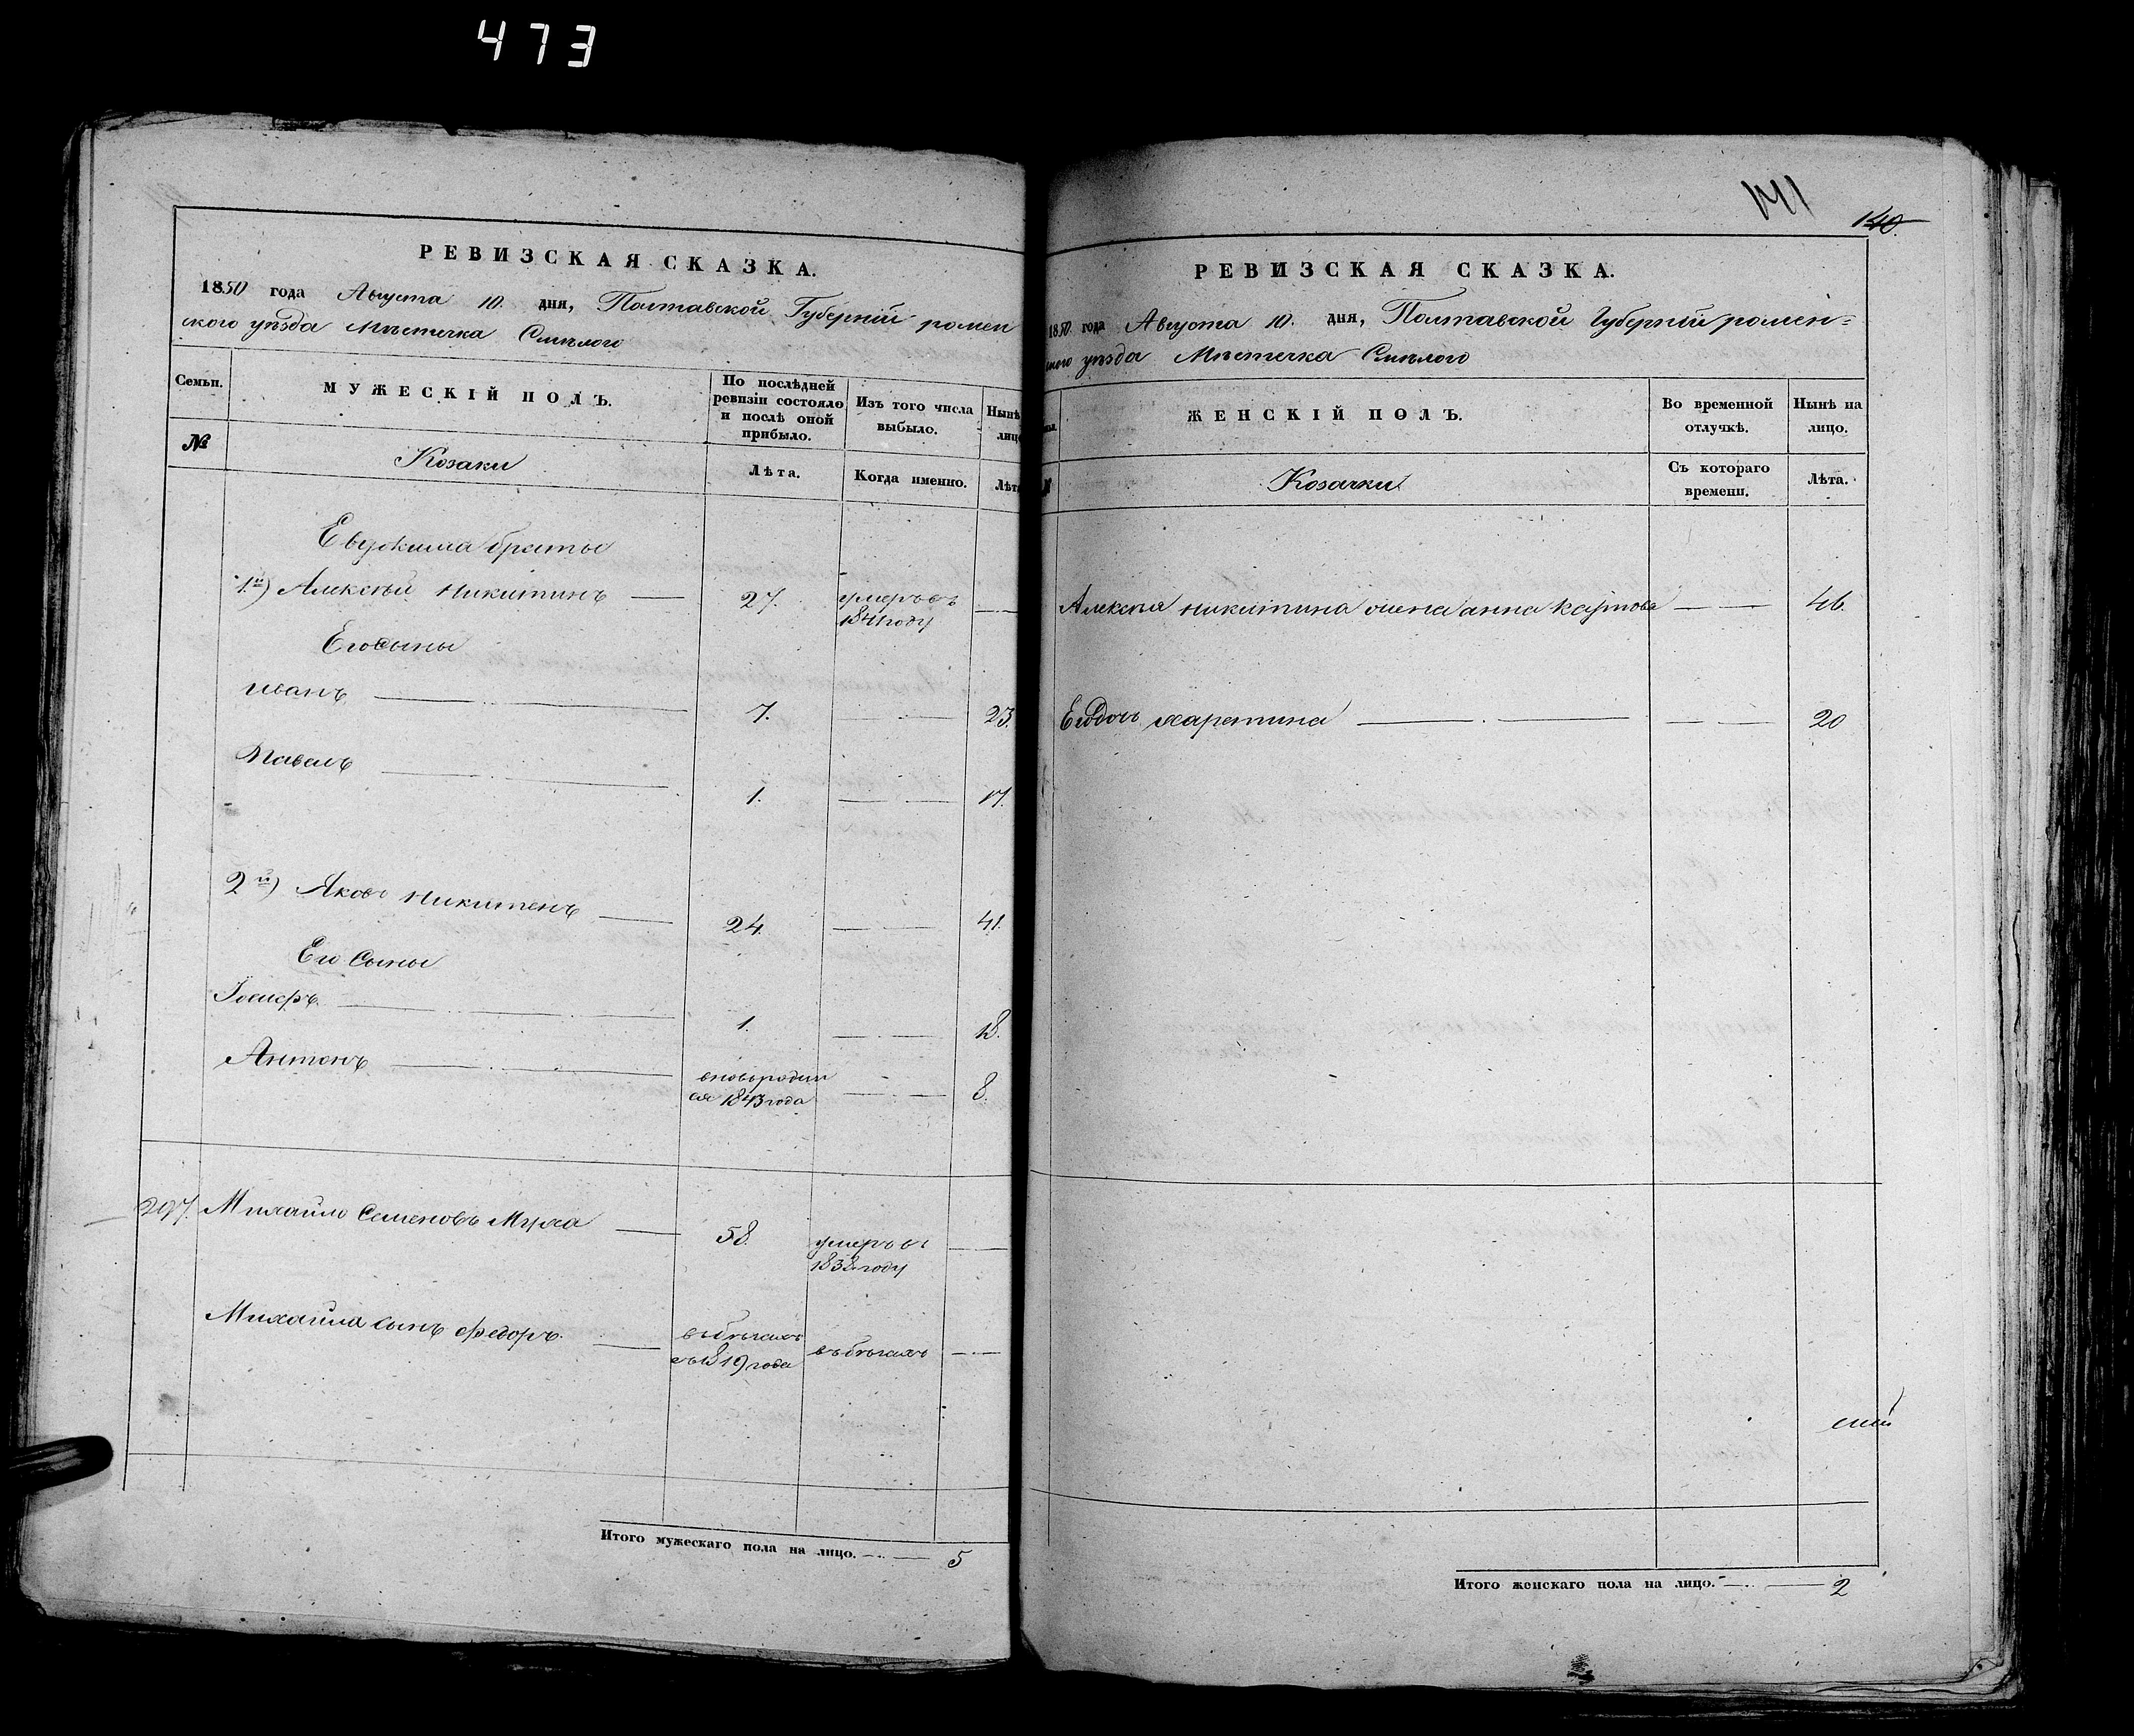 473
РЕВИЗСКАЯ СКАЗКА.
1850 года Августа 10. дня, Полтавской Губерніи ромен
ского уѣзда Мѣстечка Смѣлого
Семьи. МУЖЕСКІЙ ПОЛЪ. По послѣдней ревизіи состояло и послѣ оной прибыло. Изъ того числа выбыло. Нынѣ лицо
№ Козаки Лѣта. Когда именно. Лѣта
Евдокима братья
1й) Алексѣй Никитинъ 27. умеръ въ 1841 году
Его сыны
иванъ 7. 23
Павелъ 1. 17.
2й) Яковъ Никитенъ 24. 41.
Его Сыны
Іосифъ 1. 18.
Антонъ вновьродил ся 1843 года 8.
297. Михайло Семеновъ Муха 58. умеръ въ 1838 году
Михайла сынъ Федоръ. въбѣгахъ съ 1819 года въбѣгахъ
Итого мужескаго пола на лицо. 5
141
140.
РЕВИЗСКАЯ СКАЗКА.
1850 года Августа 10. дня, Полтавской Губерніи ромен=
ского уѣзда Мѣстечка Смѣлого
ЖЕНСКІЙ ПОЛЪ. Во временной отлучкѣ. Нынѣ на лицо.
Козачки Съ котораго времени. Лѣта.
Алексѣя никитина жена анна 46.
Его дочь харетина 20
Итого женскаго пола на лицо. 2